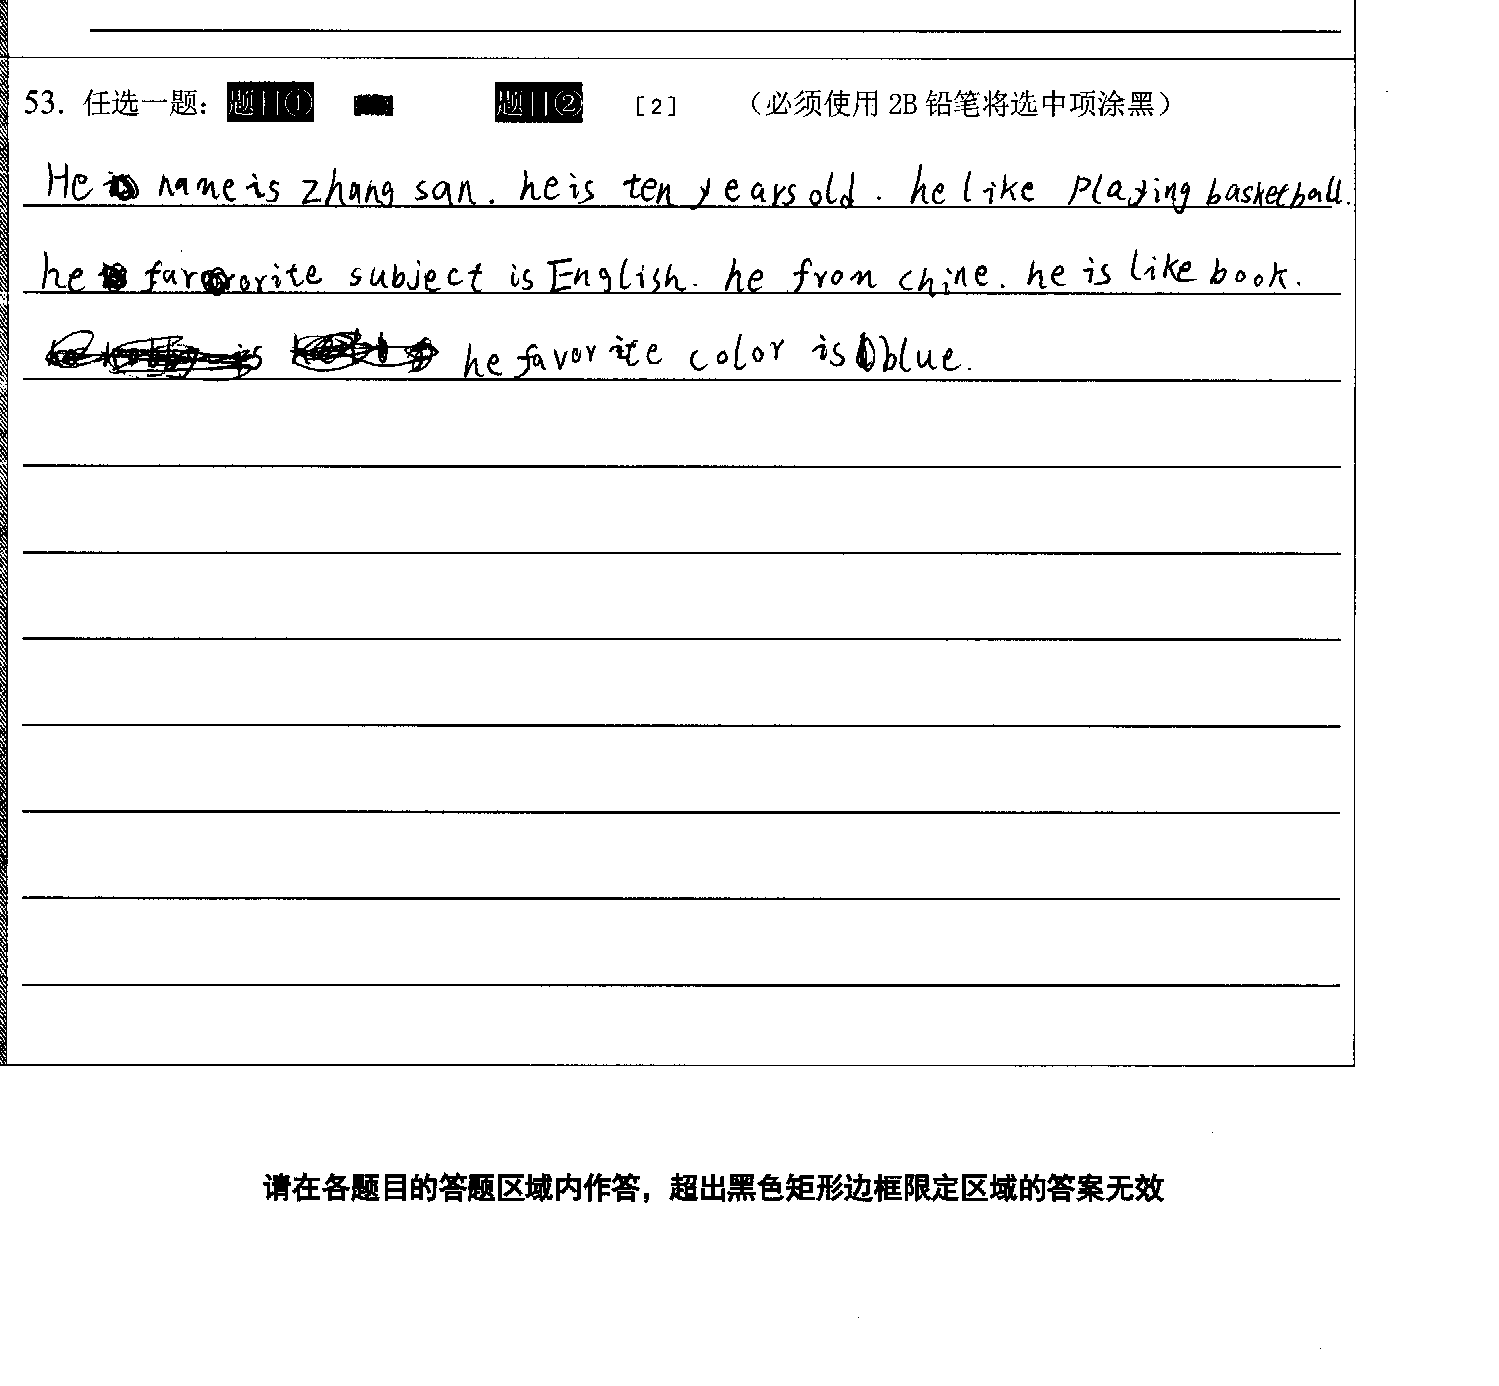 53. 任选一题: 题目① 题目② [2] （必须使用 2B 铅笔将选中项涂黑）
He name is zhang san. he is ten years old. he like Playing basketball.
he subject is English. he from chine. he is like book.
he favorite color is blue.
请在各题目的答题区域内作答，超出黑色矩形边框限定区域的答案无效